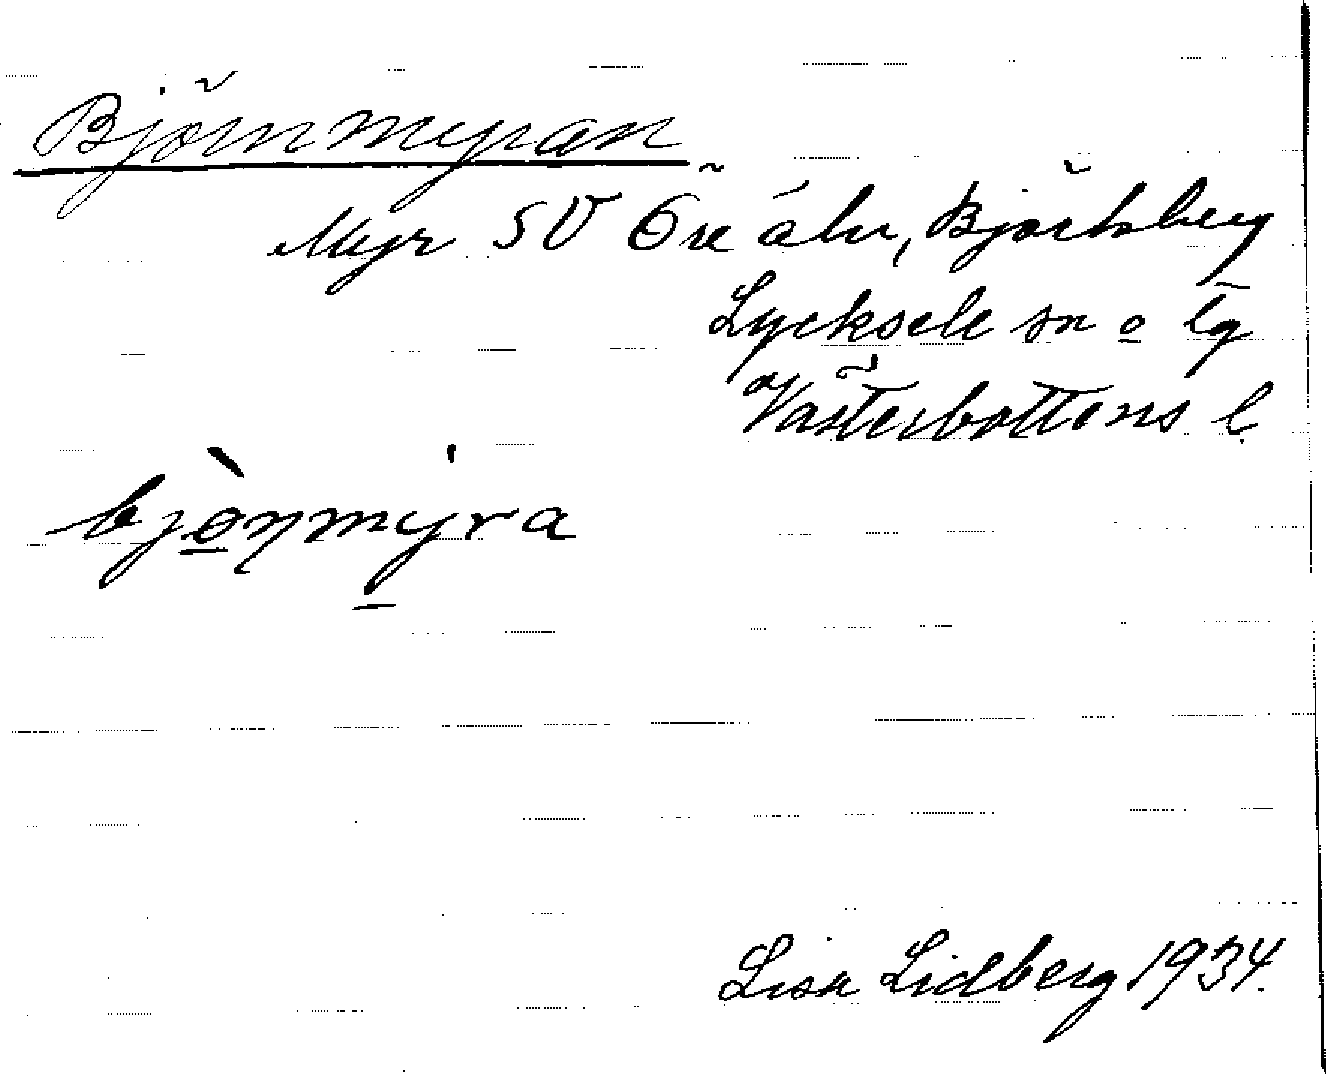 Björnmyran
Myr SV Öre älv, Björkberg
Lycksele sn o lg
Västerbottens l.
bjò̱ṇmy̱ra
Lisa Lidberg 1934.